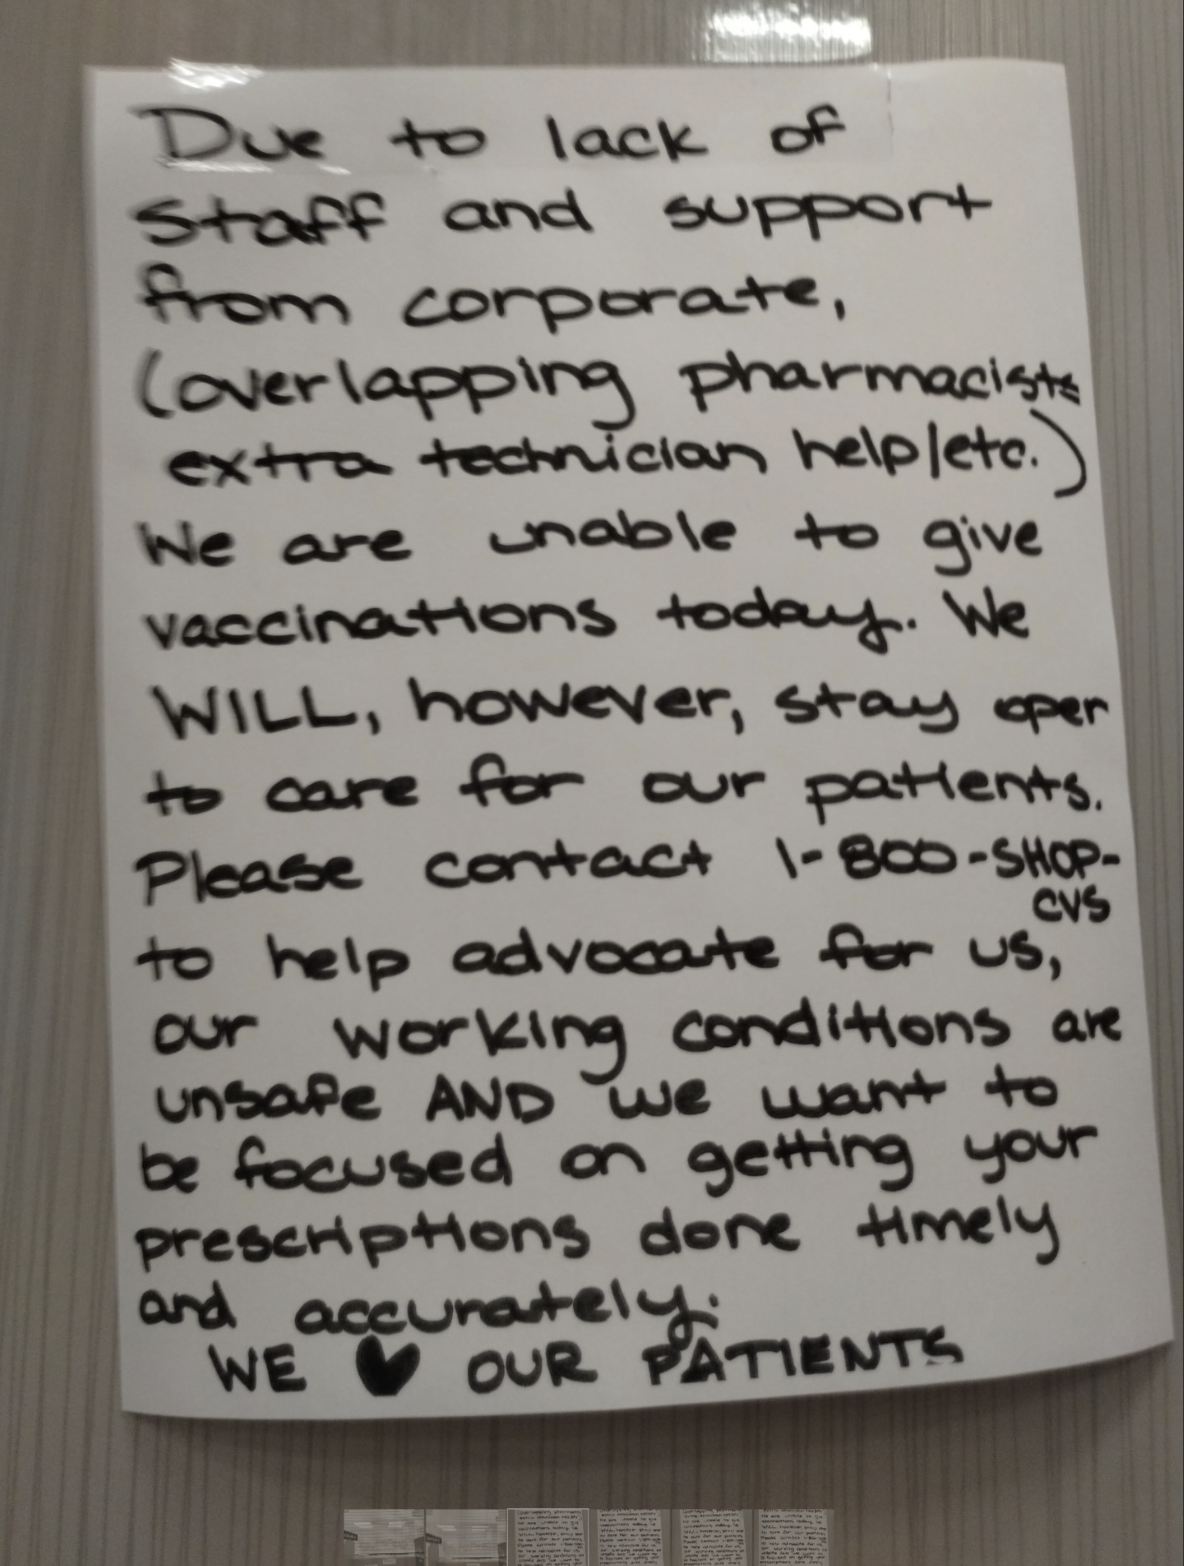 Due to lack of
staff and support
from corporate,
(overlapping pharmacists
extra technician help/etc.)
We are unable to give
vaccinations today. We
WILL, however, stay open
to care for our patients.
Please contact 1-800-SHOP-
CVS
to help advocate for us,
our working conditions are
unsafe AND we want to
be focused on getting your
prescriptions done timely
and accurately.
WE ♥ OUR PATIENTS